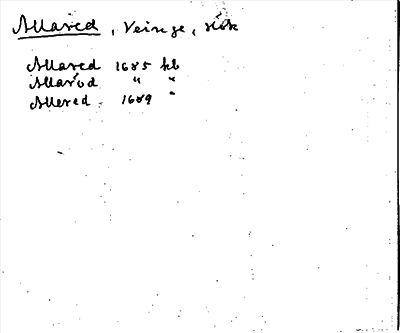 Allared, Veinge, sisk
Allared 1685 kb
Allaröd " "
Allered 1689 "